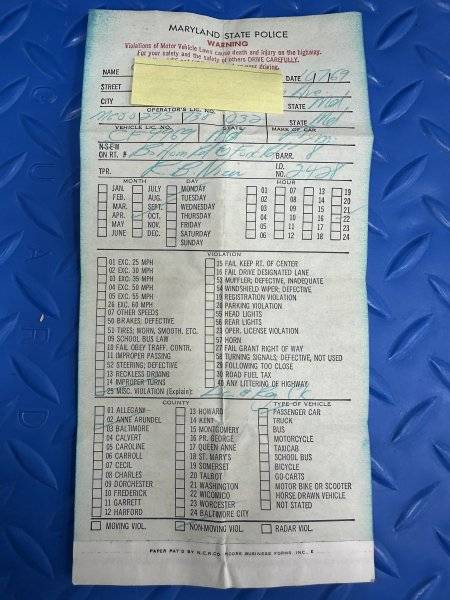 MARYLAND STATE POLICE
WARNING
Violations of Motor Vehicle Laws cause death and injury on the highway.
For your safety and the safety of others DRIVE CAREFULLY.
NAME
DATE
STREET
CITY STATE Md.
OPERATOR'S LIC. NO.
STATE Md
VEHICLE LIC. NO. STATE MAKE OF CAR
N-S-E-W
ON RT. # BARR.
TPR. I.D. NO. 2428
MONTH DAY HOUR
JAN. JULY MONDAY 01 07 13 19
FEB. AUG. TUESDAY 02 08 14 20
MAR. SEPT. WEDNESDAY 03 09 15 21
APR. OCT. THURSDAY 04 10 16 22
MAY NOV. FRIDAY 05 11 17 23
JUNE DEC. SATURDAY 06 12 18 24
SUNDAY
VIOLATION
01 EXC. 25 MPH 15 FAIL KEEP RT. OF CENTER
02 EXC. 30 MPH 16 FAIL DRIVE DESIGNATED LANE
03 EXC. 35 MPH 53 MUFFLER; DEFECTIVE, INADEQUATE
04 EXC. 50 MPH 54 WINDSHIELD WIPER; DEFECTIVE
05 EXC. 55 MPH 19 REGISTRATION VIOLATION
26 EXC. 60 MPH 28 PARKING VIOLATION
07 OTHER SPEEDS 55 HEAD LIGHTS
50 BRAKES; DEFECTIVE 56 REAR LIGHTS
51 TIRES; WORN, SMOOTH, ETC. 23 OPER. LICENSE VIOLATION
09 SCHOOL BUS LAW 57 HORN
10 FAIL OBEY TRAFF. CONTR. 27 FAIL GRANT RIGHT OF WAY
11 IMPROPER PASSING 58 TURNING SIGNALS; DEFECTIVE, NOT USED
52 STEERING; DEFECTIVE 29 FOLLOWING TOO CLOSE
13 RECKLESS DRIVING 30 ROAD FUEL TAX
14 IMPROPER TURNS 40 ANY LITTERING OF HIGHWAY
25 MISC. VIOLATION (Explain):
COUNTY TYPE OF VEHICLE
01 ALLEGANY 13 HOWARD PASSENGER CAR
02 ANNE ARUNDEL 14 KENT TRUCK
03 BALTIMORE 15 MONTGOMERY BUS
04 CALVERT 16 PR. GEORGE MOTORCYCLE
05 CAROLINE 17 QUEEN ANNE TAXICAB
06 CARROLL 18 ST. MARY'S SCHOOL BUS
07 CECIL 19 SOMERSET BICYCLE
08 CHARLES 20 TALBOT GO-CARTS
09 DORCHESTER 21 WASHINGTON MOTOR BIKE OR SCOOTER
10 FREDERICK 22 WICOMICO HORSE DRAWN VEHICLE
11 GARRETT 23 WORCESTER NOT STATED
12 HARFORD 24 BALTIMORE CITY
MOVING VIOL. NON-MOVING VIOL. RADAR VIOL.
PAPER PAT'D BY N.C.R.CO. MOORE BUSINESS FORMS, INC. E